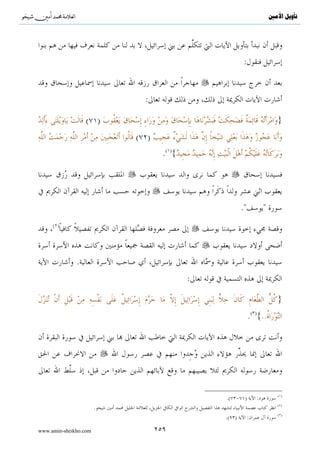 تأويل الأمين
العلامة محمد أمين شيخو
وقبل أن نبدأ بتأويل الآيات التي تتكلَّم عن بني إسرائيل، لا بد لنا من كلمة نعرف فيها من هم بنوا
إسرائيل فنقول:
بعد أن خرج سيدنا إبراهيم ﷺ مهاجراً من العراق رزقه الله تعالى سيدنا إسماعيل وإسحاق وقد
أشارت الآيات الكريمة إلى ذلك، ومن ذلك قوله تعالى:
{وَامْرَأَتُهُ قَائِمَةٌ فَضَحِكَتْ فَبَشَّرْنَاهَا بِإِسْحَاقَ وَمِن وَرَاءِ إِسْحَاقَ يَعْقُوبَ (٧١) قَالَتْ يَاوَيْلَتَى ءَأَلِدُ
وَأَنَا عَجُوزٌ وَهَذَا بَعْلِي شَيْخًا إِنَّ هَذَا لَشَيْءٌ عَجِيبٌ (٧٢) قَالُوا أَتَعْجَبِينَ مِنْ أَمْرِ اللَّهِ رَحْمَتُ اللَّهِ
وَبَرَكَاتُهُ عَلَيْكُمْ أَهْلَ الْبَيْتِ إِنَّهُ حَمِيدٌ مَجِيدٌ}(١).
فسيدنا إسحاق ﷺ هو كما نرى والد سيدنا يعقوب ﷺ الملقب بإسرائيل وقد رُزق سيدنا
يعقوب اثني عشر ولداً ذكراً وهم سيدنا يوسف ﷺ وإخوته حسب ما أشار إليه القرآن الكريم في
سورة "يوسف".
وقصة مجيء إخوة سيدنا يوسف ﷺ إلى مصر معروفة فصَّلها القرآن الكريم تفصيلاً كافياً(٢)، وقد
أضحى أولاد سيدنا يعقوب ﷺ كما أشارت إليه القصة جميعاً مؤمنين وكانت هذه الأسرة أسرة
سيدنا يعقوب أسرة عالية وسمَّاه الله تعالى بإسرائيل، أي صاحب الأسرة العالية. وأشارت الآية
الكريمة إلى هذه التسمية في قوله تعالى:
{كُلُّ الطَّعَامِ كَانَ حِلاًّ لِبَنِي إِسْرَائِيلَ إِلاَّ مَا حَرَّمَ إِسْرَائِيلُ عَلَى نَفْسِهِ مِنْ قَبْلِ أَنْ تُنَزَّلَ
التَّوْرَاةُ..}(٣).
وأنت ترى من خلال هذه الآيات الكريمة التي خاطب الله تعالى بها بني إسرائيل في سورة البقرة أن
الله تعالى إنما يحذِّر هؤلاء الذين وُجدوا منهم في عصر رسول الله ﷺ من الانحراف عن الحق
ومعارضة رسوله الكريم لئلا يصيبهم ما وقع لآبائهم الذين حادوا من قبل، إذ سلَّط الله تعالى
(١) سورة هود: الآية (٧١-٧٣).
(٢) انظر كتاب عصمة الأنبياء لتشهد هذا التفصيل والشرح الوافي الكافي الجزيل، للعلامة الجليل محمد أمين شيخو.
(٣) سورة آل عمران: الآية (٩٣).
٢٥٩
www.amin-sheikho.com